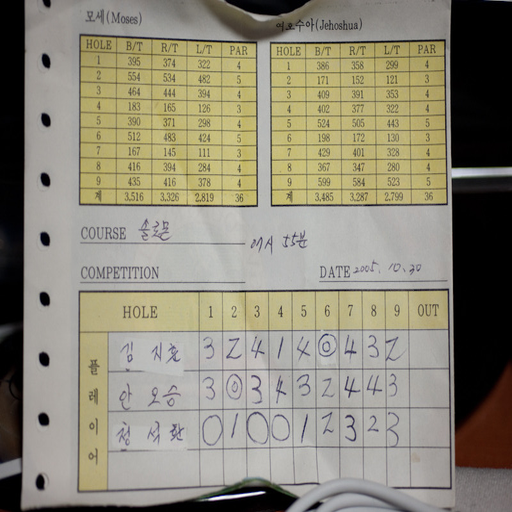 모세(Moses)
여호수아(Jehoshua)
HOLE B/T R/T L/T PAR
1 395 374 322 4
2 554 534 482 5
3 464 444 394 4
4 183 165 126 3
5 390 371 298 4
6 512 483 424 5
7 167 145 111 3
8 416 394 284 4
9 435 416 378 4
계 3,516 3,326 2,819 36
HOLE B/T R/T L/T PAR
1 386 358 299 4
2 171 152 121 3
3 409 391 353 4
4 402 377 322 4
5 524 505 443 5
6 198 172 130 3
7 429 401 328 4
8 367 347 280 4
9 599 584 523 5
계 3,485 3,287 2,799 36
COURSE 솔로몬 에서 55분
COMPETITION DATE 2005. 10. 30
HOLE 1 2 3 4 5 6 7 8 9 OUT
플레이어
김 지호 3 2 4 1 4 0 4 3 2
안 오승 3 0 3 4 3 2 4 4 3
정 석환 0 1 0 0 1 2 3 2 3